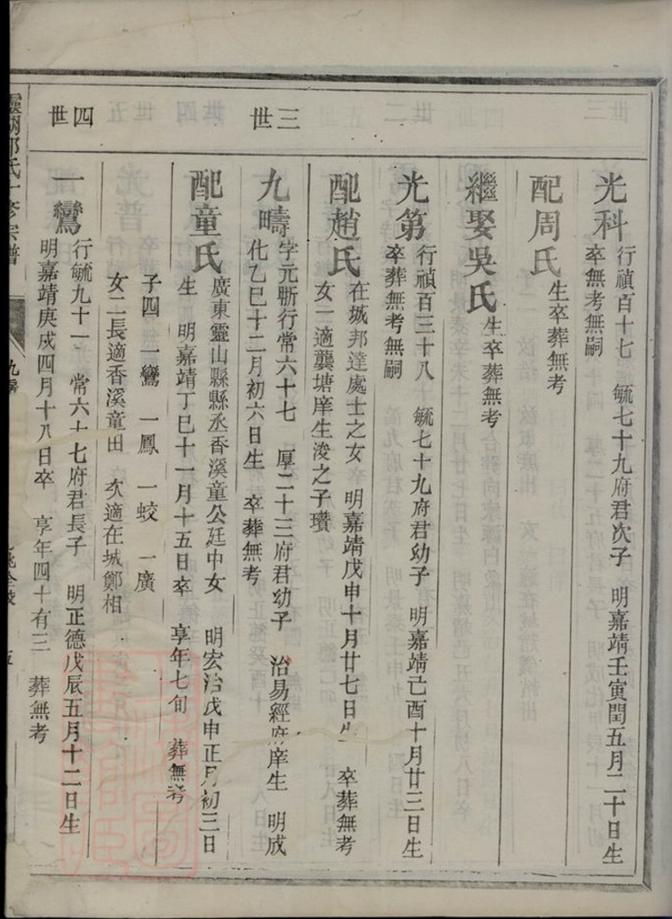 光科 行禎百十七 毓七十九府君次子 明嘉靖壬寅閏五月二十日生
卒葬無考無嗣
配周氏 生卒葬無考
繼娶吳氏 生卒葬無考
光第 行禎百三十八 毓七十九府君幼子 明嘉靖己酉十月廿三日生
卒葬無考無嗣
配趙氏 在城邦達處士之女 明嘉靖戊申十月廿七日生 卒葬無考
女一適龔塘庠生浚之子瓚
三世
九疇 字元斷行常六十七 厚二十三府君幼子 治易經府庠生 明成
化乙巳十二月初六日生 卒葬無考
配童氏 廣東靈山縣縣丞香溪童公廷中女 明宏治戊申正月初三日
生 明嘉靖丁巳十一月十五日卒 享年七旬 葬無考
子四 一鸞 一鳳 一蛟 一廣
女二長適香溪童田 次適在城鄭相
四世
一鸞 行毓九十一 常六十七府君長子 明正德戊辰五月十二日生
明嘉靖庚戌四月十八日卒 享年四十有三 葬無考